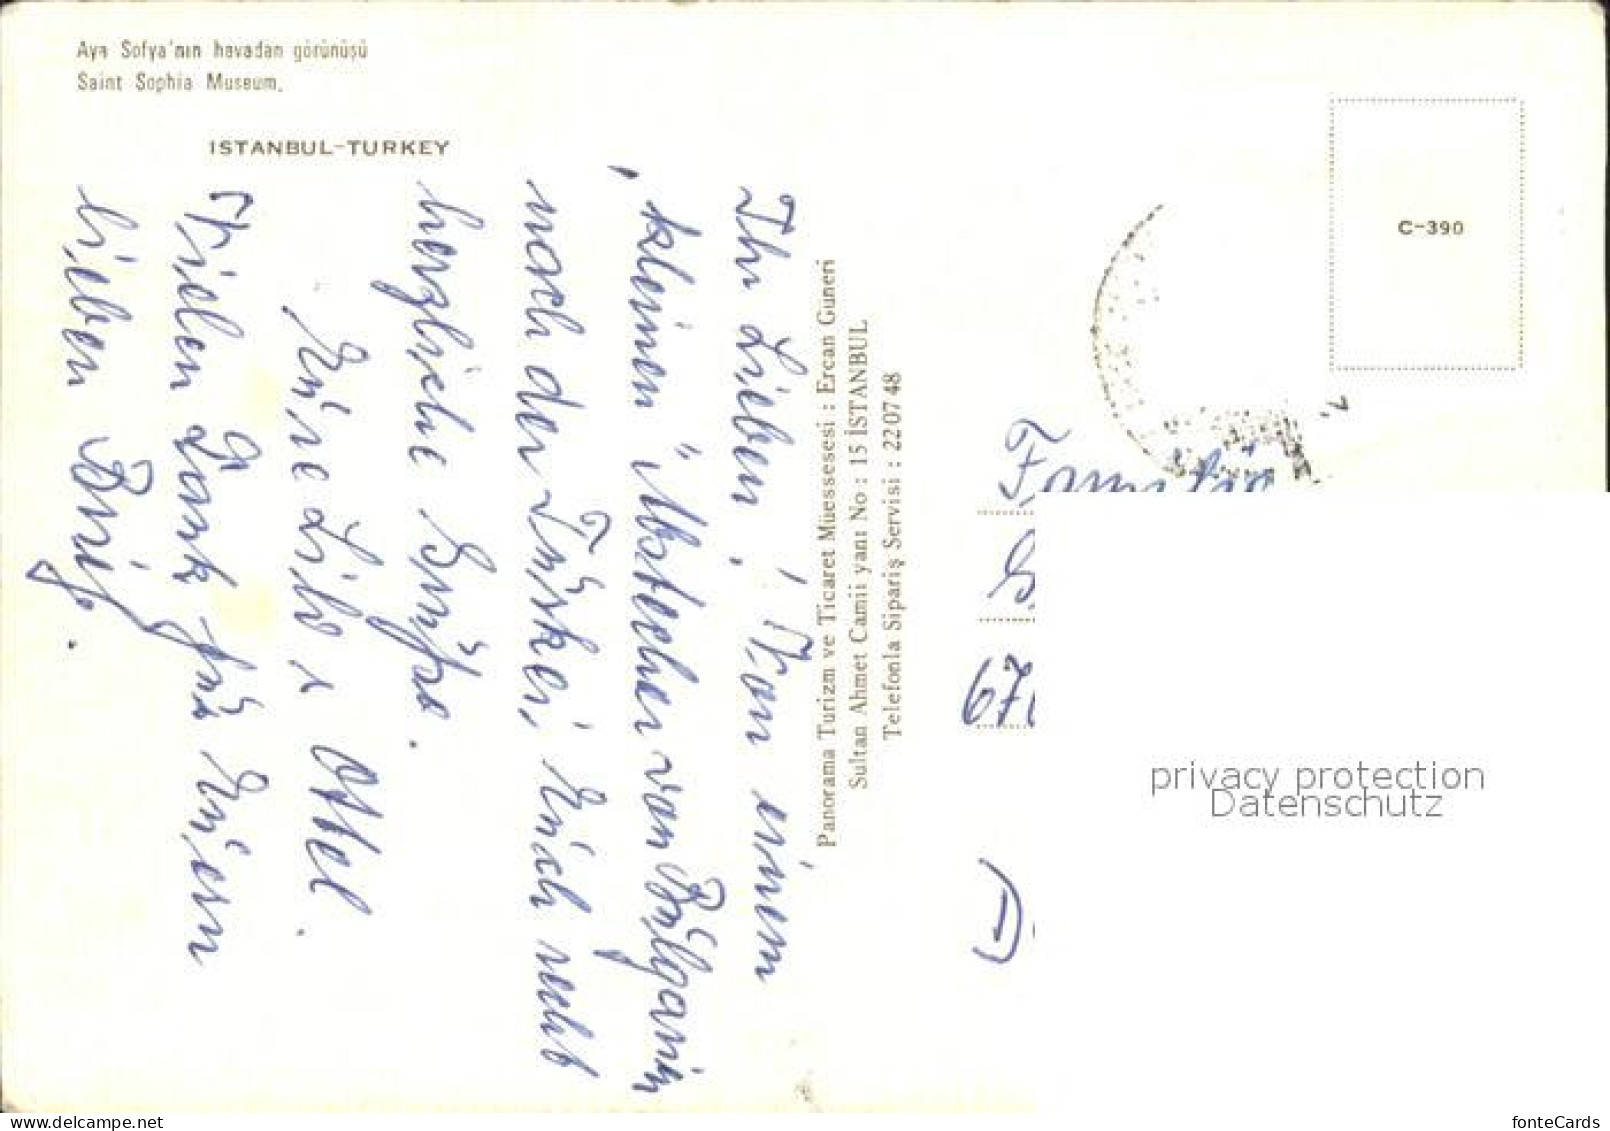 Aya Sofya'nın havadan görünüşü
Saint Sophia Museum.
ISTANBUL-TURKEY
C-390
Ihr Lieben! Von einem
kleinen "Abstecher von Bulgarien
nach der Türkei, Euch recht
herzliche Grüße.
Eure Lilo & Ottel.
Vielen Dank für Euren
lieben Brief.
Panorama Turizm ve Ticaret Müessesesi : Ercan Güneri
Sultan Ahmet Camii yanı No : 15 İSTANBUL
Telefonla Sipariş Servisi : 22 07 48
Familie
67
D
privacy protection
Datenschutz
fonteCards